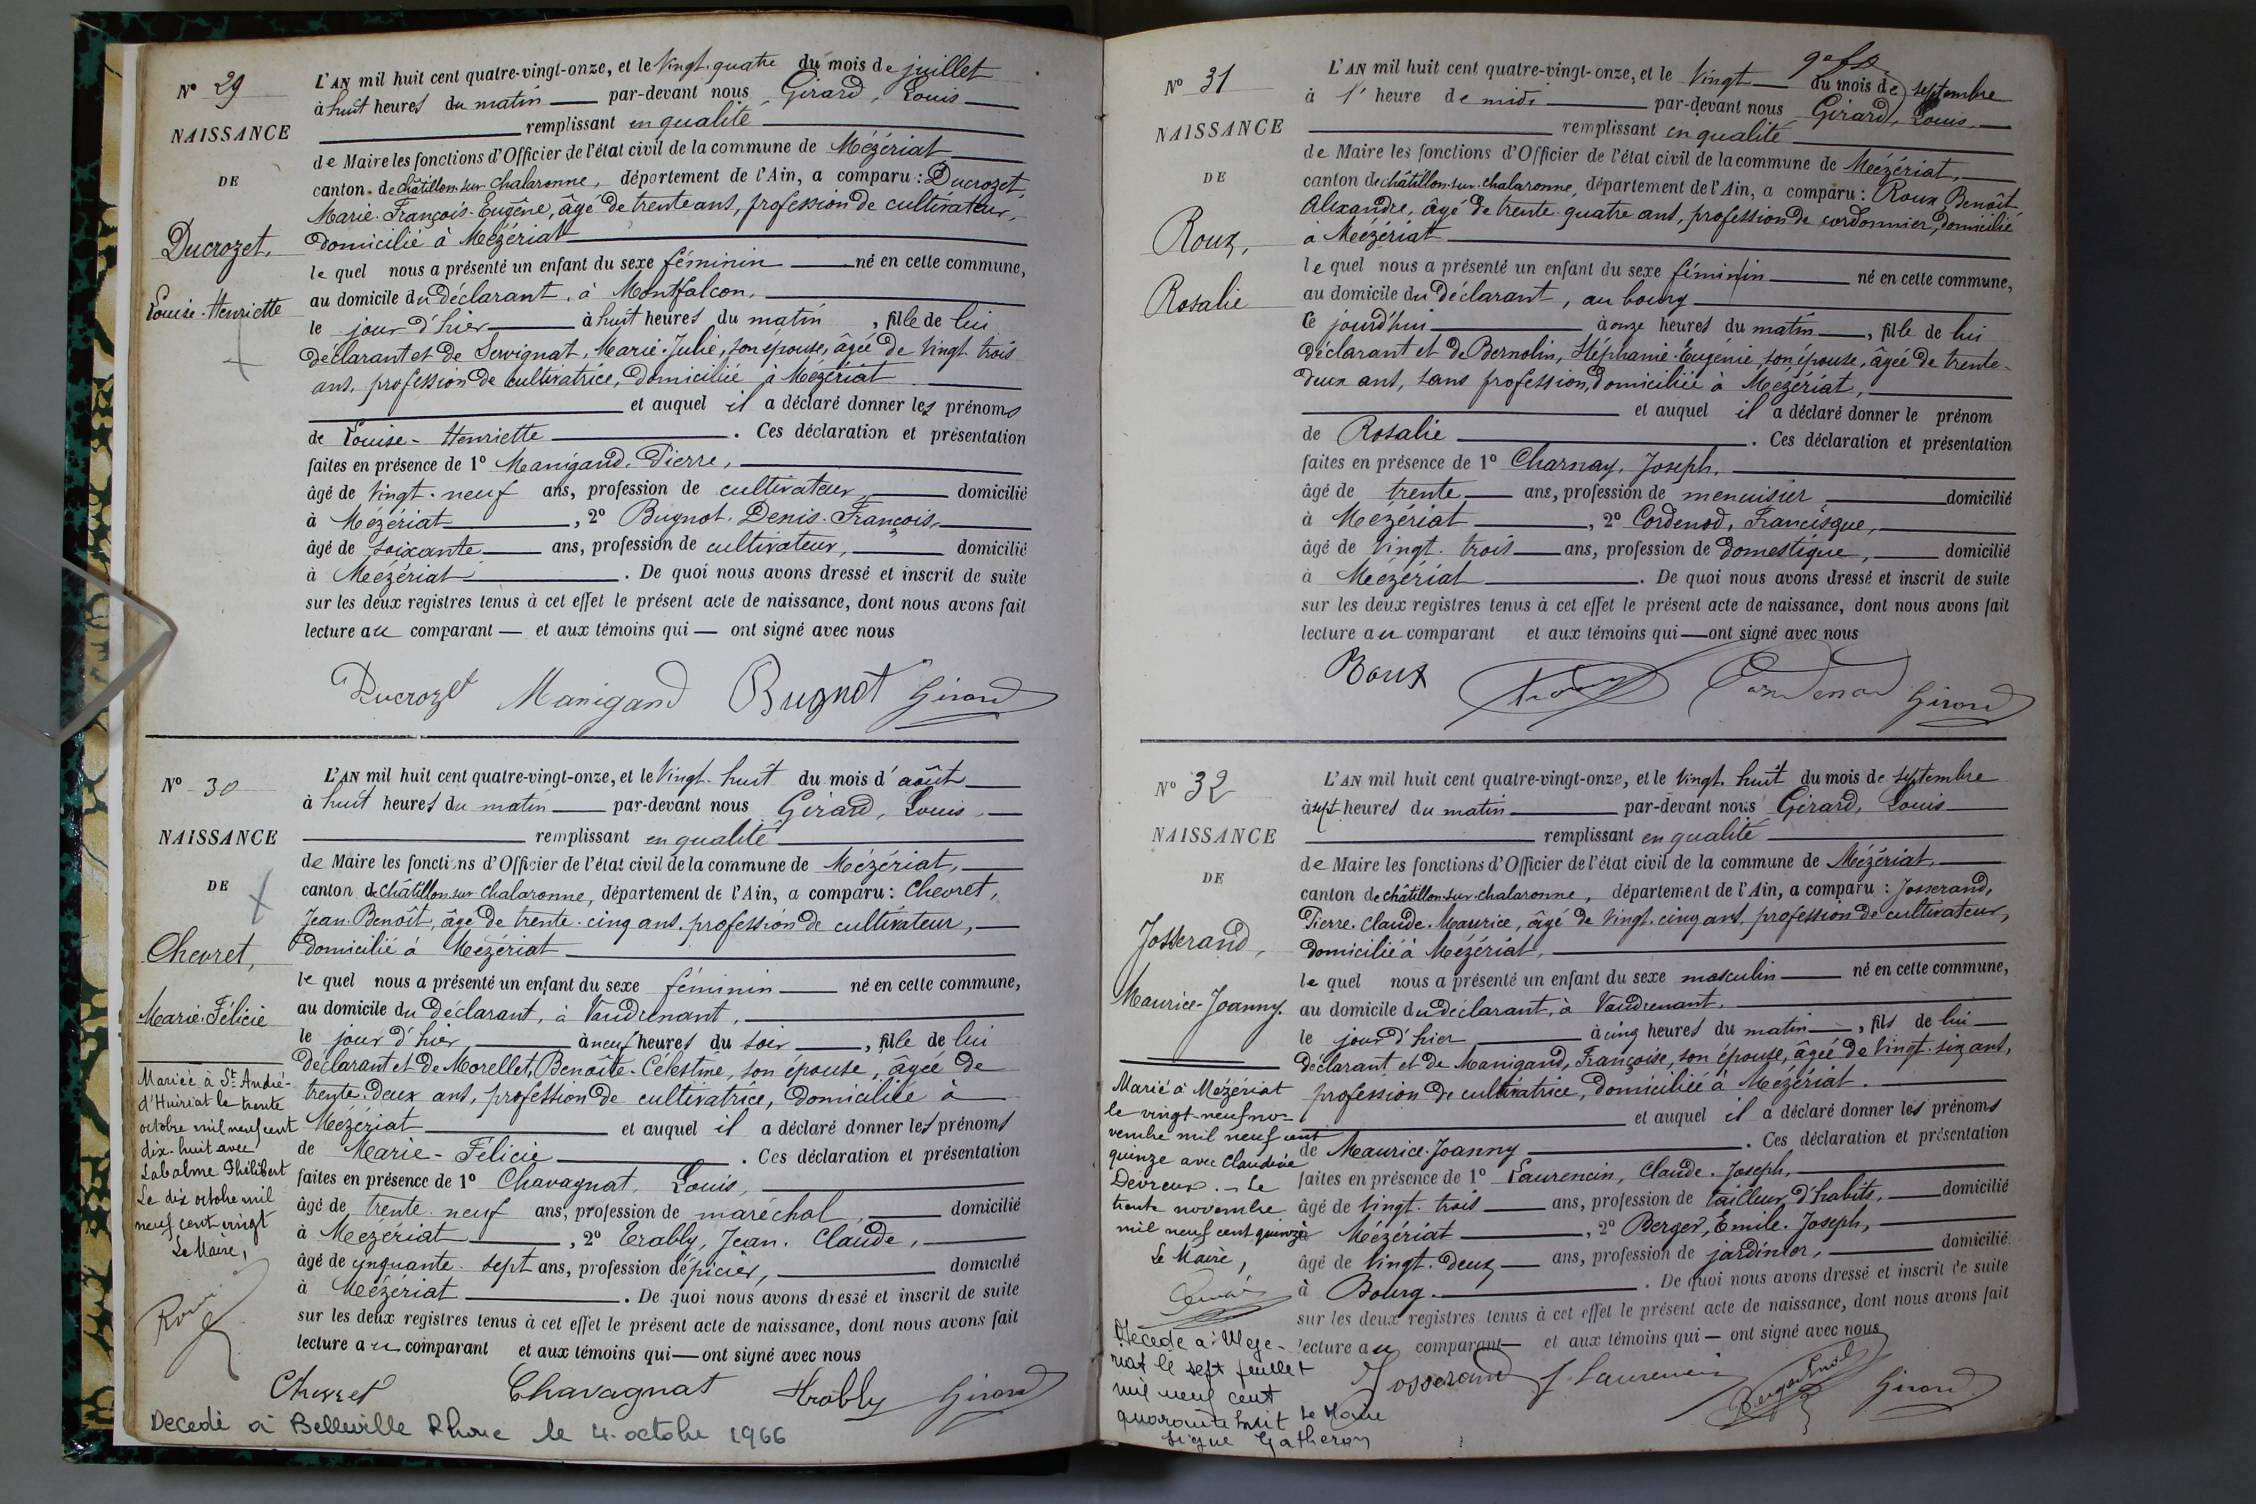 N° 29
NAISSANCE
DE
Ducrozet,
Louise-Henriette
L'AN mil huit cent quatre-vingt-onze, et le Vingt-quatre du mois de juillet
à huit heures du matin par-devant nous Girard, Louis
remplissant en qualité
de Maire les fonctions d'Officier de l'état civil de la commune de Mézériat
canton de châtillon-sur-chalaronne, département de l'Ain, a comparu : Ducrozet,
Marie-François-Eugêne, âgé de trente ans, profession de cultivateur,
domicilié à Mézériat
le quel nous a présenté un enfant du sexe féminin né en cette commune,
au domicile du déclarant, à Montfalcon,
le jour d'hier à huit heures du matin, fille de lui
déclarant et de Servignat, Marie-Julie, son épouse, âgée de vingt trois
ans, profession de cultivatrice, domiciliée à Mézériat
et auquel il a déclaré donner les prénoms
de Louise-Henriette. Ces déclaration et présentation
faites en présence de 1° Manigand, Pierre,
âgé de vingt-neuf ans, profession de cultivateur, domicilié
à Mézériat, 2° Bugnot, Denis-François,
âgé de soixante ans, profession de cultivateur, domicilié
à Mézériat. De quoi nous avons dressé et inscrit de suite
sur les deux registres tenus à cet effet le présent acte de naissance, dont nous avons fait
lecture au comparant — et aux témoins qui — ont signé avec nous
Ducrozet Manigand Bugnot Girard
N° 30
NAISSANCE
DE
Chevret,
Marie-Félicie
Mariée à St André-
d'Huiriat le trente
octobre mil neuf cent
dix-huit avec
Labalme Philibert
Le dix octobre mil
neuf cent vingt
Le Maire,
L'AN mil huit cent quatre-vingt-onze, et le Vingt-huit du mois d'août
à huit heures du matin par-devant nous Girard, Louis,
remplissant en qualité
de Maire les fonctions d'Officier de l'état civil de la commune de Mézériat,
canton de châtillon-sur-chalaronne, département de l'Ain, a comparu : Chevret,
Jean-Benoît, âgé de trente-cinq ans, profession de cultivateur,
domicilié à Mézériat
le quel nous a présenté un enfant du sexe féminin né en cette commune,
au domicile du déclarant, à Vaudrenant,
le jour d'hier, à neuf heures du soir, fille de lui
déclarant et de Morellet, Benoîte-Célestine, son épouse, âgée de
trente-deux ans, profession de cultivatrice, domiciliée à
Mézériat et auquel il a déclaré donner les prénoms
de Marie-Félicie. Ces déclaration et présentation
faites en présence de 1° Chavagnat, Louis,
âgé de trente-neuf ans, profession de maréchal, domicilié
à Mézériat, 2° Trably, Jean-Claude,
âgé de cinquante-sept ans, profession d'épicier, domicilié
à Mézériat. De quoi nous avons dressé et inscrit de suite
sur les deux registres tenus à cet effet le présent acte de naissance, dont nous avons fait
lecture au comparant et aux témoins qui — ont signé avec nous
Chevret Chavagnat Trably Girard
Decedé à Belleville Rhone le 4 octobre 1966
N° 31
NAISSANCE
DE
Roux,
Rosalie
L'AN mil huit cent quatre-vingt-onze, et le Vingt du mois de septembre
à 1' heure de midi par-devant nous Girard, Louis,
remplissant en qualité
de Maire les fonctions d'Officier de l'état civil de la commune de Mézériat,
canton de châtillon-sur-chalaronne, département de l'Ain, a comparu : Roux, Benoît
Alexandre, âgé de trente-quatre ans, profession de cordonnier, domicilié
a Mézériat
le quel nous a présenté un enfant du sexe féminin né en cette commune,
au domicile du déclarant, au bourg
ce jourd'hui à onze heures du matin, fille de lui
déclarant et de Bernolin, Stéphanie-Eugénie, son épouse, âgée de trente-
deux ans, sans profession, domiciliée à Mézériat,
et auquel il a déclaré donner le prénom
de Rosalie. Ces déclaration et présentation
faites en présence de 1° Charnay, Joseph,
âgé de trente ans, profession de menuisier domicilié
à Mézériat, 2° Cordenod, Francisque,
âgé de vingt-trois ans, profession de domestique, domicilié
à Mézériat. De quoi nous avons dressé et inscrit de suite
sur les deux registres tenus à cet effet le présent acte de naissance, dont nous avons fait
lecture au comparant et aux témoins qui — ont signé avec nous
Roux Cordenod Girard
N° 32
NAISSANCE
DE
Josserand,
Maurice-Joanny.
Marié à Mézériat
le vingt-neuf no-
vembre mil neuf cent
quinze avec Claudine
Devreux. - Le
trente novembre
mil neuf cent quinze
Le Maire,
Décédé à Mézé-
riat le sept juillet
mil neuf cent
quarante huit Le Maire
signé Gatheron
L'AN mil huit cent quatre-vingt-onze, et le Vingt-huit du mois de septembre
à sept heures du matin par-devant nous Girard, Louis
remplissant en qualité
de Maire les fonctions d'Officier de l'état civil de la commune de Mézériat,
canton de châtillon-sur-chalaronne, département de l'Ain, a comparu : Josserand,
Pierre-Claude-Maurice, âgé de vingt-cinq ans, profession de cultivateur,
domicilié à Mézériat,
le quel nous a présenté un enfant du sexe masculin né en cette commune,
au domicile du déclarant, à Vaudrenant,
le jour d'hier à cinq heures du matin, fils de lui
déclarant et de Manigand, Françoise, son épouse, âgée de vingt-six ans,
profession de cultivatrice, domiciliée à Mézériat.
et auquel il a déclaré donner les prénoms
de Maurice-Joanny. Ces déclaration et présentation
faites en présence de 1° Laurencin, Claude-Joseph,
âgé de vingt-trois ans, profession de tailleur d'habits, domicilié
à Mézériat, 2° Berger, Emile-Joseph,
âgé de vingt-deux ans, profession de jardinier, domicilié
à Bourg. De quoi nous avons dressé et inscrit de suite
sur les deux registres tenus à cet effet le présent acte de naissance, dont nous avons fait
lecture au comparant et aux témoins qui — ont signé avec nous
Josserand J. Laurencin Girard